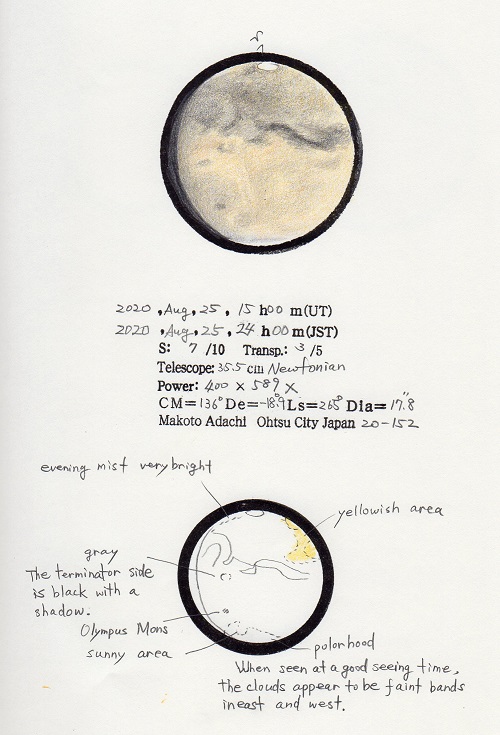 S
2020 , Aug, 25 , 15 h00 m(UT)
2020 , Aug, 25 , 24 h00 m(JST)
S: 7 /10 Transp.: 3 /5
Telescope: 35.5 cm Newtonian
Power: 400 × 589 ×
CM=136° De=-18.9° Ls=265° Dia= 17.8"
Makoto Adachi Ohtsu City Japan 20-152
evening mist very bright
yellowish area
gray
The terminator side
is black with a
shadow.
Olympus Mons
sunny area
polorhood
When seen at a good seeing time,
the clouds appear to be faint bands
in east and west.